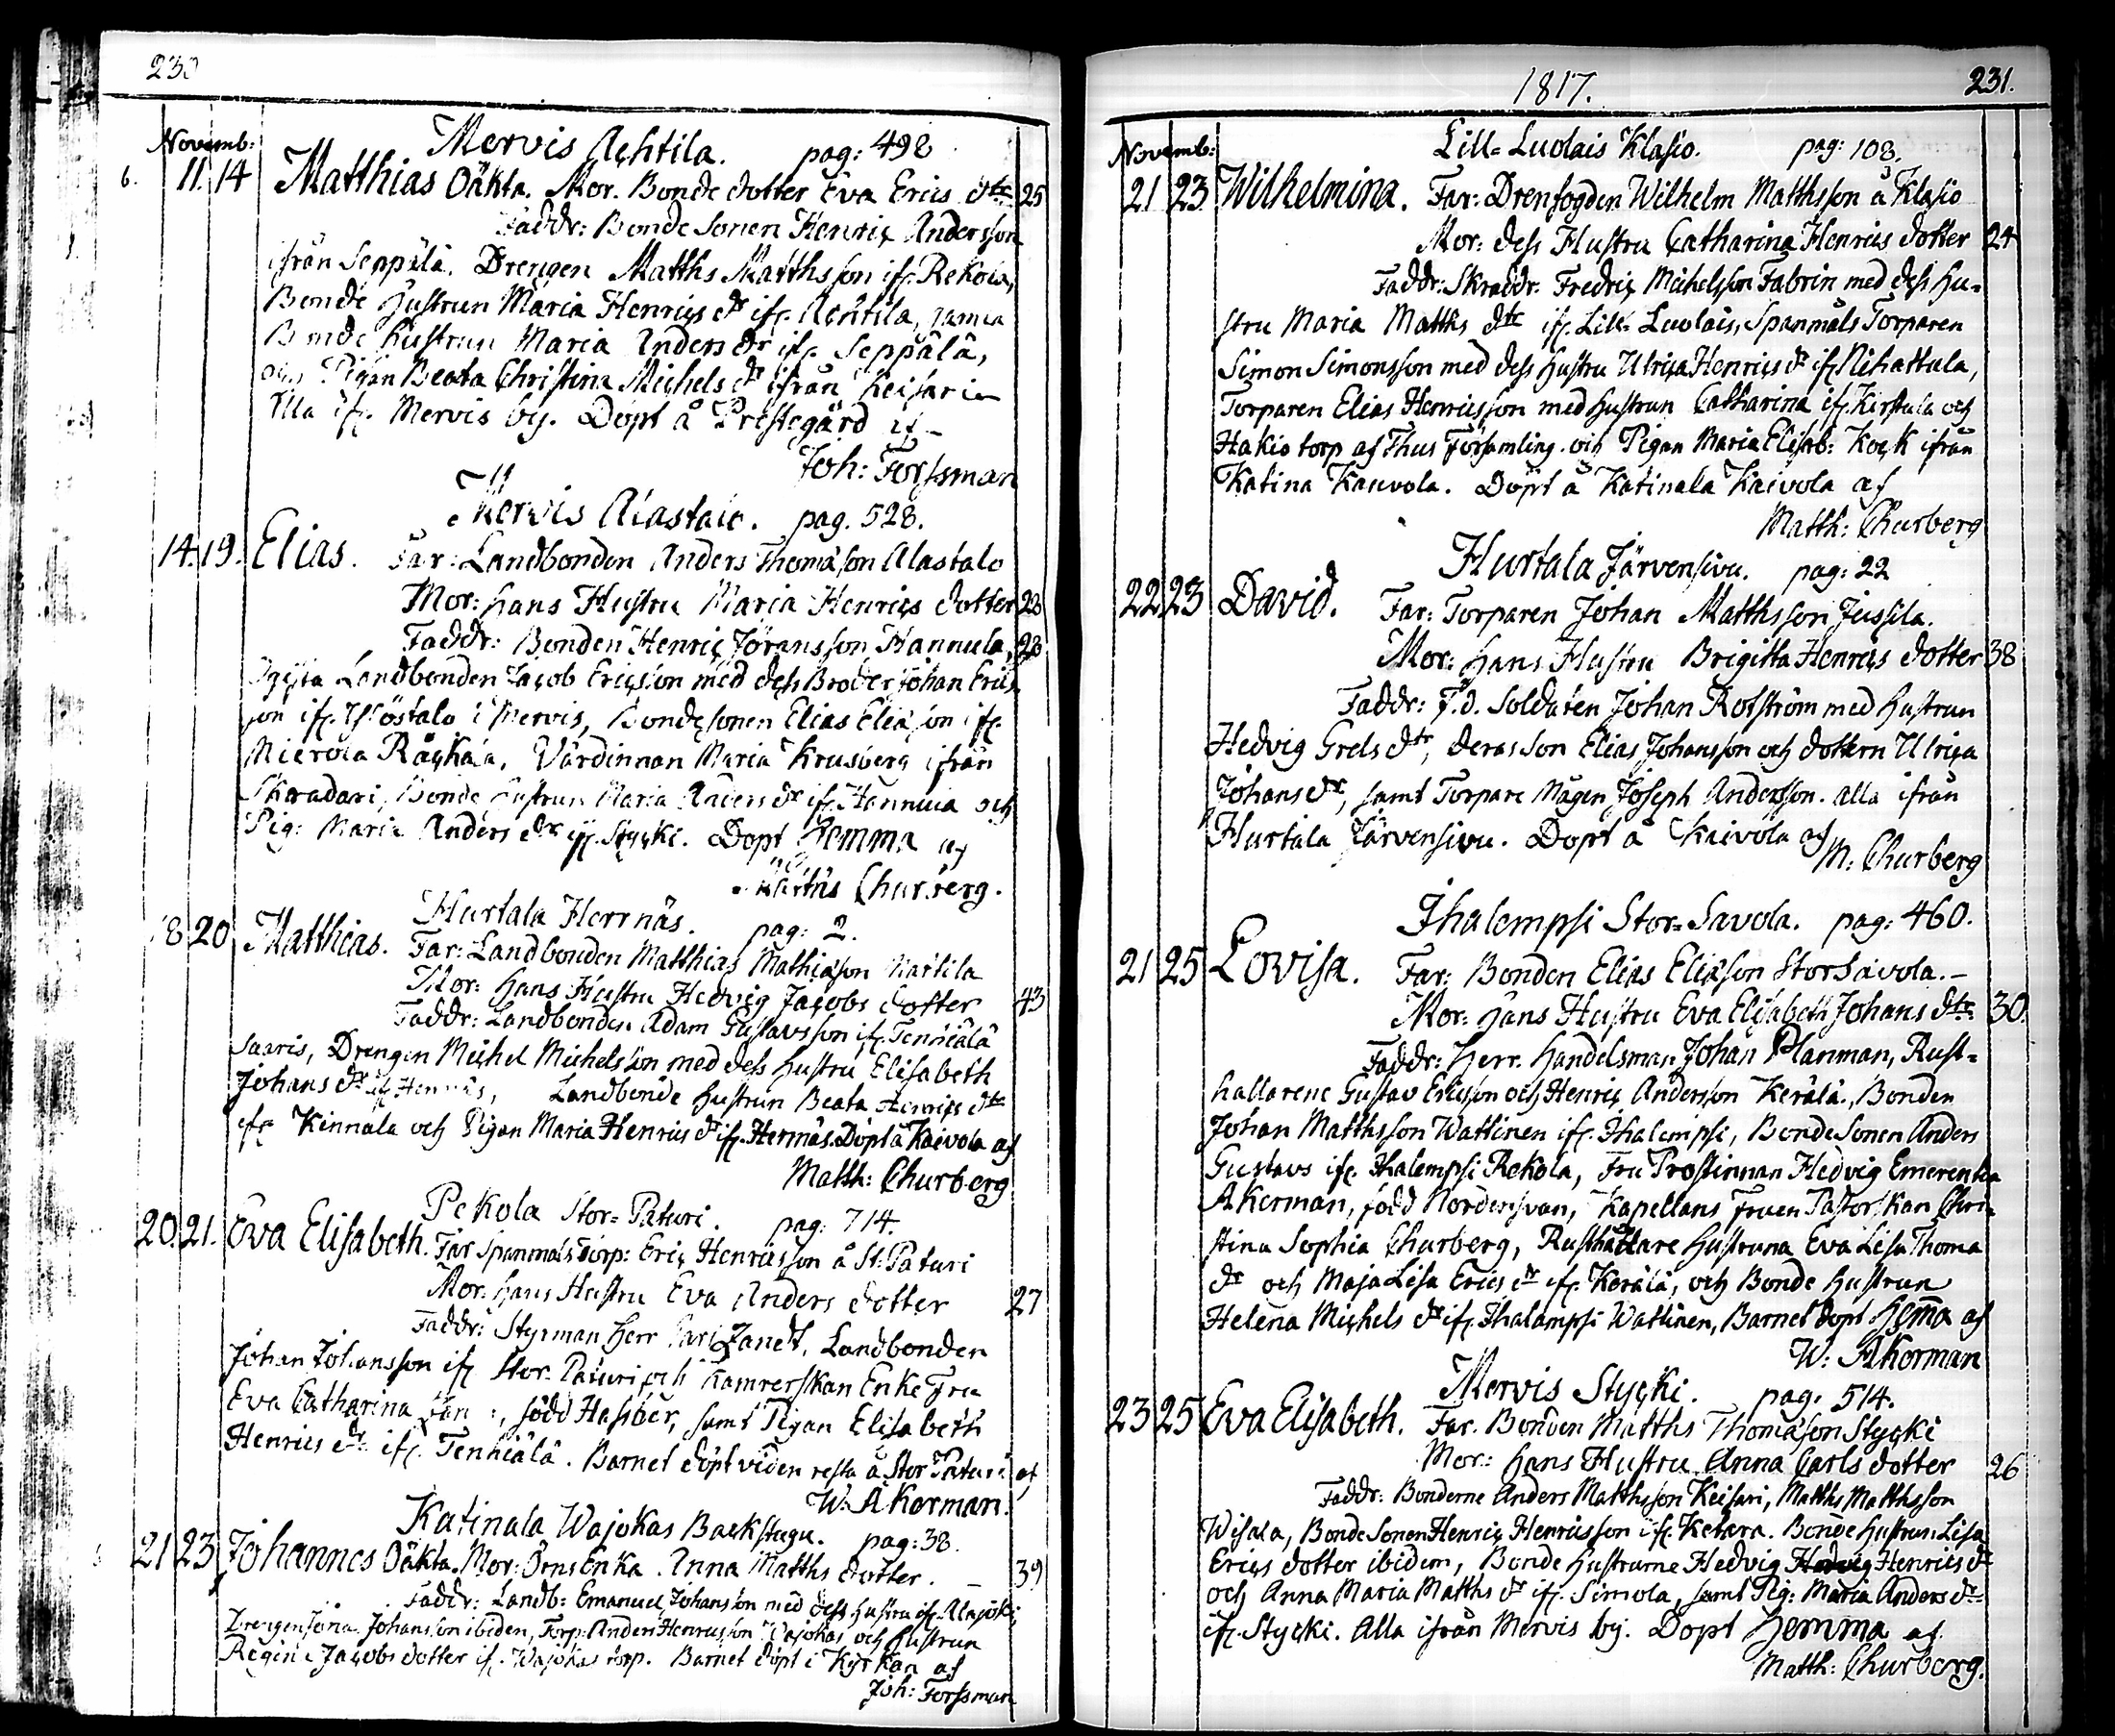 230
Novemb:
Mervis Achtila. pag: 498
6. 11. 14 Matthias Oäkta. Mor. Bonde dotter Eva Erics dtr 25
Faddr: Bonde Sonen Henric Andersson
ifrån Seppälä. Drengen Matths Matthsson ifr. Rekola,
Bonde Hustrun Maria Henrics dr ifr. Achtila,
Bonde Hustrun Maria Anders dr ifr. Seppälä,
Pigan Beata Christina Michels dr ifrån Keisari
alla ifr. Mervis by. Döpt å Prestegård af
Joh: Forssman
Mervis Alastalo. pag. 528.
14. 19. Elias. Far: Landbonden Anders Thomasson Alastalo
Mor: hans Hustru Maria Henrics dotter 28
Faddr: Bonden Henric Jöransson Hannula,
Landbonden Jacob Ericsson med dess Broder Johan Erics
son ifr. Ylöstalo i Mervis, Bondesonen Elias Eliasson ifr.
Mierola Räckälä, Värdinnan Maria Krusberg ifrån
Skradari, Bonde Hustrun Maria Anders dr ifr. Hannula och
Pig: Maria Anders dr ifr. Stycki. Döpt Hemma af
Matths Churberg.
Hurtala Herrnäs. pag: 2.
18 20 Matthias. Far: Landbonden Matthias Mathiasson Martila
Mor: hans Hustru Hedvig Jacobs dotter 43
Faddr: Landbonden Adam Gustavsson ifr. Tenhiälä
Saaris, Drengen Michel Michelsson med dess hustru Elisabeth
Johans dr ifr Hernäs, Landbonde hustrun Beata Henrics dtr
ifr. Kinnala och Pigan Maria Henrics dr ifr. Hernäs. Döpt å Kaivola af
Matth: Churberg
Pekola Stor=Paturi. pag: 714.
20. 21. Eva Elisabeth. Far Spanmåls Torp: Eric Henricsson å St: Paturi
Mor: hans Hustru Eva Anders dotter 27
Faddr: Styrman Herr Carl Zandt, Landbonden
Johan Johansson ifr Stor-Paturi och Kamrerskan Enke Fru
Eva Catharina, född Hasiber, samt Pigan Elisabeth
Henrics dr ifr. Tenhiälä. Barnet döpt viden resta å Stor Paturi af
W: Akerman.
Katinala Wajokas Backstugu. pag: 38.
21 23 Johannes Oäkta. Mor: Örns Enka. Anna Matths dotter. — 39
Faddr: Landb: Emanuel Johansson med dess hustru ifr. Alajoki,
Drengen Jona Johansson ibiden, Torp: Anders Henricsson Wajokas och hustrun
Regina Jacobs dotter ifr. Wajokas torp. Barnet döpt i Kyrkan af
Joh: Forssman
1817. 231.
Novemb:
Lill=Luolais Klasio. pag: 108.
21 23 Wilhelmina. Far: Drenfogden Wilhelm Matthsson å Klasio
Mor: dess Hustru Catharina Henrics dotter 24
Faddr: Skraddr. Fredric Michelsson Fabrin med dess hu=
stru Maria Matths dtr ifr. Lill=Luolais, Spanmåls Torparen
Simon Simonsson med dess hustru Ulrica Henrics dr ifr Nihattula,
Torparen Elias Henricsson med hustrun Catharina ifr. Kirstula och
Hakio torp af Thus Församling. och Pigan Maria Elisab: Kock ifrån
Katina Kauvola. Döpt å Katinala Kaivola af
Matth: Churberg
Hurtala Järvensivu. pag: 22
22 23 David. Far: Torparen Johan Matthsson Jussila.
Mor: hans Hustru Brigitta Henrics dotter 38
Faddr: F.d. Soldaten Johan Rotström med hustrun
Hedvig Grels dtr, deras Son Elias Johansson och dottern Ulrica
Johans dr, samt Torpare Mågen Joseph Andersson. alla ifrån
Hurtala Järvensivu. Döpt å Kaivola af
M: Churberg
Ihalempsi Stor=Savola. pag: 460.
21 25 Lovisa. Far: Bonden Elias Eliasson Storsavola. —
Mor: hans Hustru Eva Elisabeth Johans dtr 30.
Faddr: Herr. Handelsman Johan Planman, Rust=
hallarene Gustav Ericsson och Henric Andersson Kerälä, Bonden
Johan Matthsson Wattinen ifr. Ihalempsi, Bonde Sonen Anders
Gustavs ifr. Ihalempsi Rekola, Fru Prostinnan Hedvig Emerentia
Akerman, född Nordensvan, Kapellans Fruen Pastorskan Chri=
stina Sophia Churberg, Rusthållare hustruna Eva Lisa Thoma
dr och Maja Lisa Erics dr ifr. Kerälä, och Bonde hustrun
Helena Michels dr ifr. Ihalampsi Wattinen, Barnet döpt Hema af
W: Akerman
Mervis Stycki. pag. 514.
23 25 Eva Elisabeth. Far. Bonden Matths Thomasson Stycki
Mor: hans Hustru Anna Carls dotter 26
Faddr: Bonderne Anders Matthsson Keisari, Matths Matthsson
Wisala, Bonde Sonen Henric Henricsson ifr. Ketara. Bonde hustrun Lisa
Erics dotter ibidem, Bonde hustrurne Hedvig Henrics dr
och Anna Maria Matths dr ifr. Simola, samt Pig: Maria Anders dr
ifr. Stycki. Alla ifrån Mervis by. Döpt hemma af
Matth: Churberg.